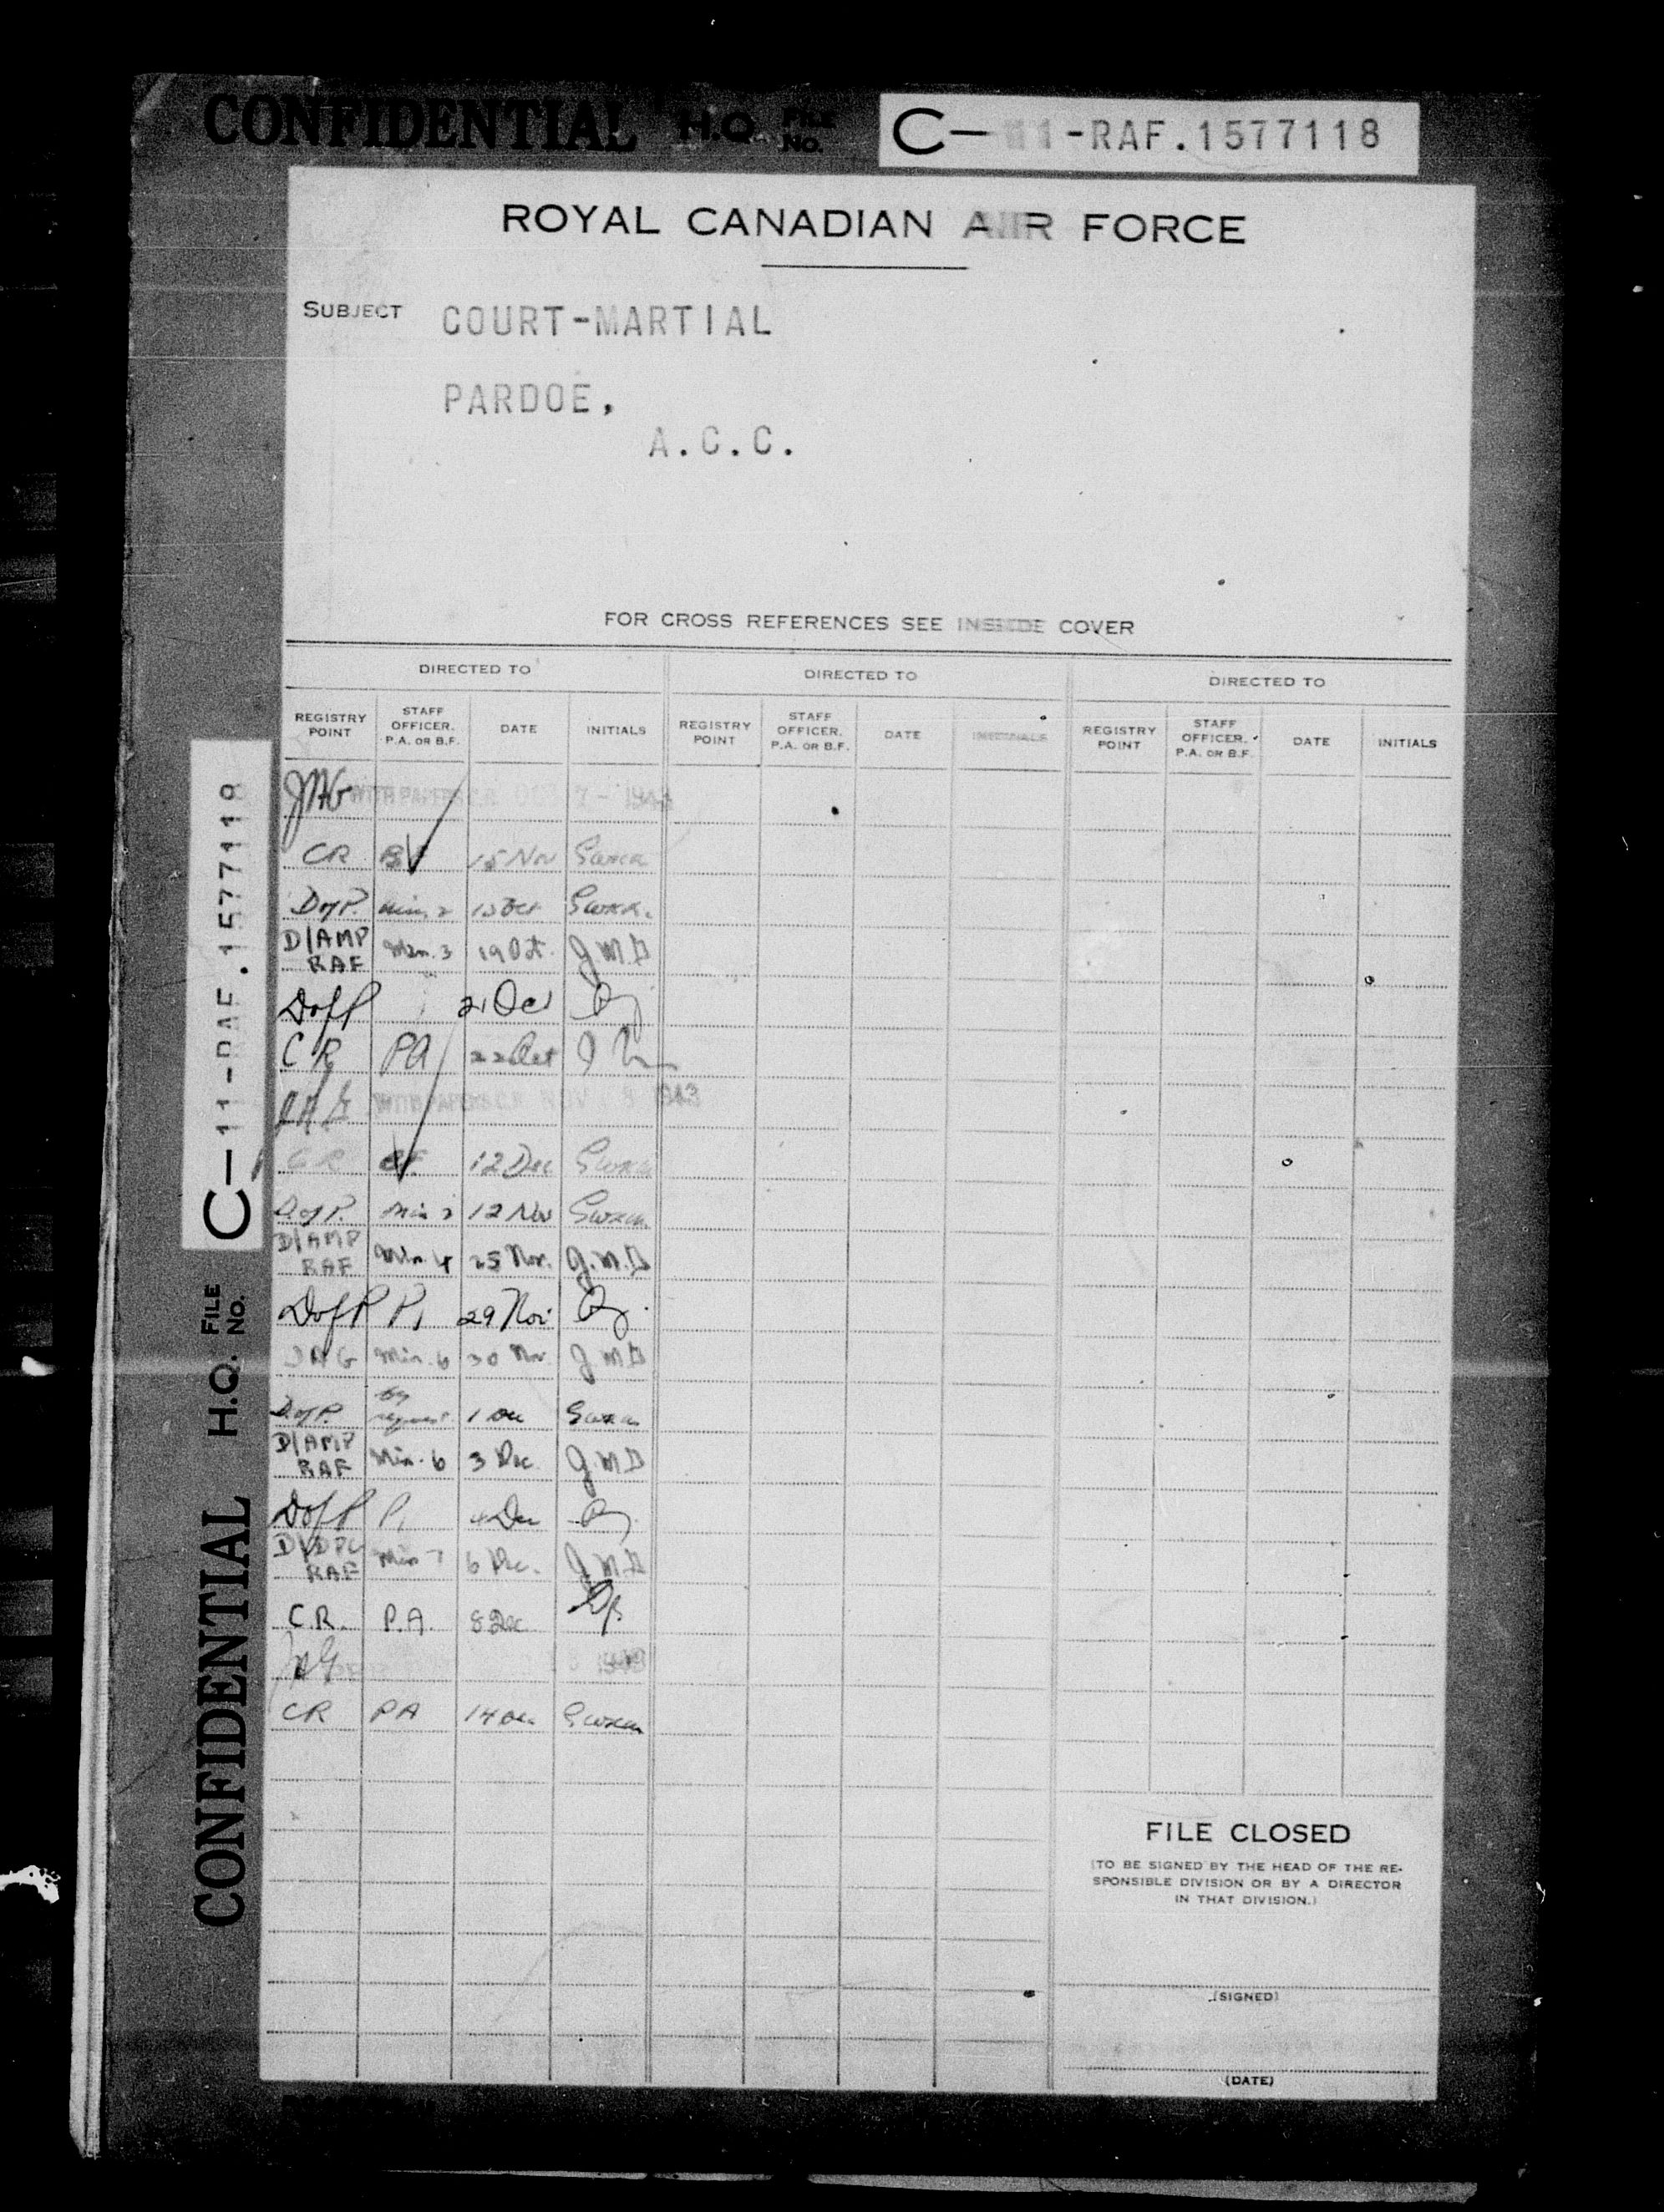 CONFIDENTIAL H.Q. FILE NO. C-11-RAF.1577118
ROYAL CANADIAN AIR FORCE
SUBJECT COURT-MARTIAL
PARDOE,
A.C.C.
FOR CROSS REFERENCES SEE INSIDE COVER
DIRECTED TO DIRECTED TO DIRECTED TO
REGISTRY POINT STAFF OFFICER. P.A. OR B.F. DATE INITIALS REGISTRY POINT STAFF OFFICER. P.A. OR B.F. DATE INITIALS REGISTRY POINT STAFF OFFICER. P.A. OR B.F. DATE INITIALS
JAG WITH PAPERS C.R. OCT 7-1943
CR BF 15 Nov
D of P. Min. 2 13 Oct
D/AMP RAF Min. 3 19 Oct. J.M.D
D of P 21 Oct
CR PA 22 Oct
JAG WITH PAPERS C.R. NOV 8 1943
CR BF. 12 Dec
D of P. Min 2 12 Nov
D/AMP RAF Min. 4 25 Nov. J.M.D
D of P P, 29 Nov
JAG Min. 6 30 Nov. J M D
D of P. by request 1 Dec
D/AMP RAF Min. 6 3 Dec. J M D
D of P P, 4 Dec
RAF Min 7 6 Dec. J.M.D
C.R. P.A. 8 Dec
JAG 1943
CR PA 14 Dec
FILE CLOSED
(TO BE SIGNED BY THE HEAD OF THE RE-
SPONSIBLE DIVISION OR BY A DIRECTOR
IN THAT DIVISION.)
(SIGNED)
(DATE)
CONFIDENTIAL H.Q. FILE NO. C-11-RAF.1577118